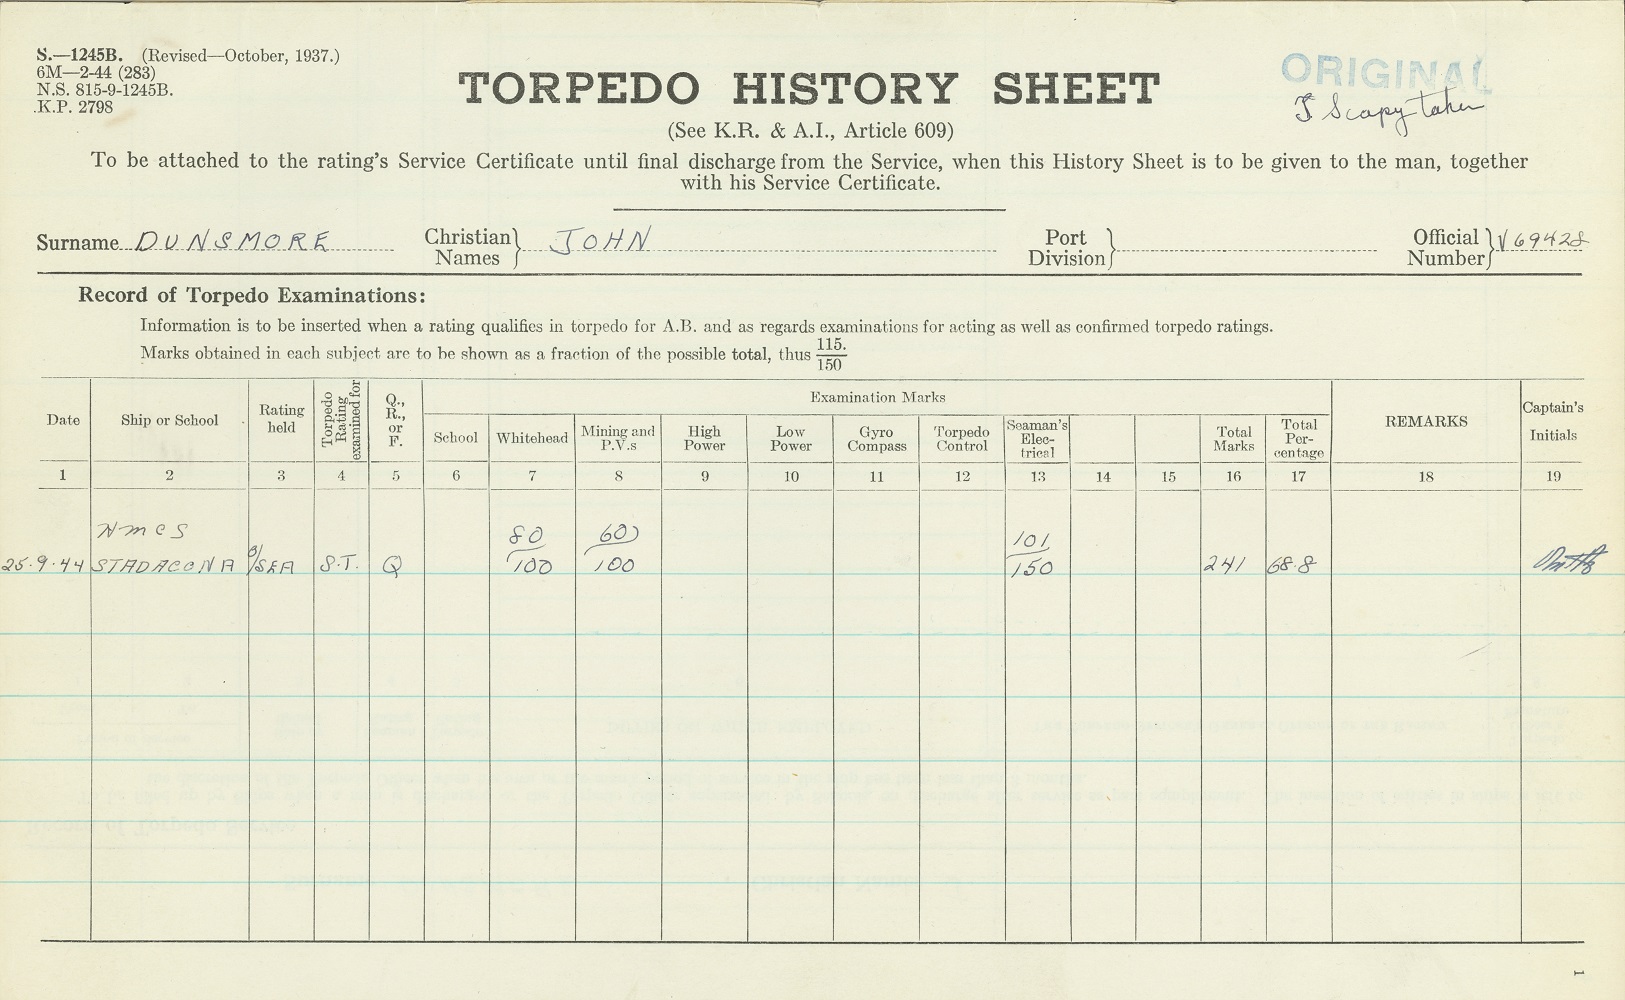 S.—1245B. (Revised—October, 1937.)
6M—2-44 (283)
N.S. 815-9-1245B.
K.P. 2798
ORIGINAL
TORPEDO HISTORY SHEET
(See K.R. & A.I., Article 609)
To be attached to the rating's Service Certificate until final discharge from the Service, when this History Sheet is to be given to the man, together
with his Service Certificate.
Surname DUNSMORE Christian Names JOHN Port Division Official Number V69428
Record of Torpedo Examinations:
Information is to be inserted when a rating qualifies in torpedo for A.B. and as regards examinations for acting as well as confirmed torpedo ratings.
Marks obtained in each subject are to be shown as a fraction of the possible total, thus 115./150
Examination Marks
Date Ship or School Rating held Torpedo Rating examined for Q., R., or F. School Whitehead Mining and P.V.s High Power Low Power Gyro Compass Torpedo Control Seaman's Elec-trical Total Marks Total Per-centage REMARKS Captain's Initials
1 2 3 4 5 6 7 8 9 10 11 12 13 14 15 16 17 18 19
HMCS 80 60 101
25.9.44 STADACONA O/SEA S.T. Q 100 100 150 241 68.8
1